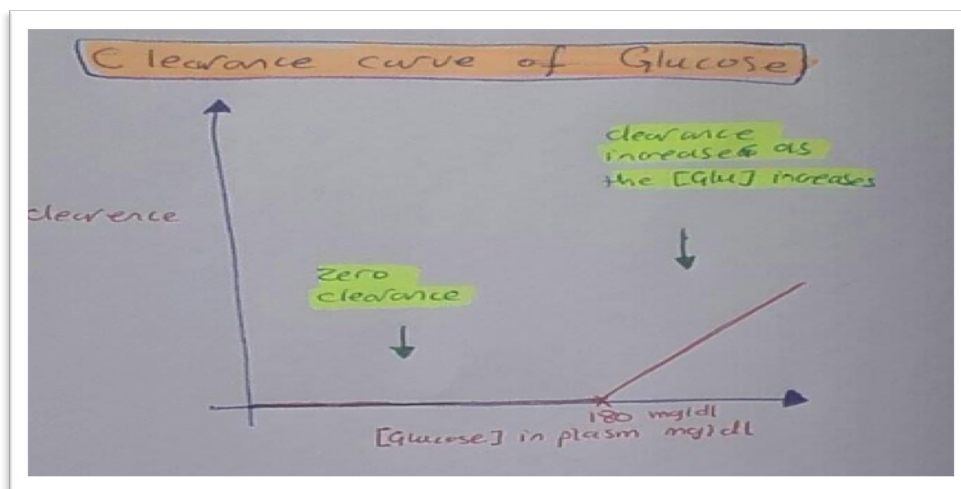 Clearance curve of Glucose
clearance
increases as
the [Glu] increases
clearence
Zero
clearance
180 mg/dl
[Glucose] in plasm mg/dl